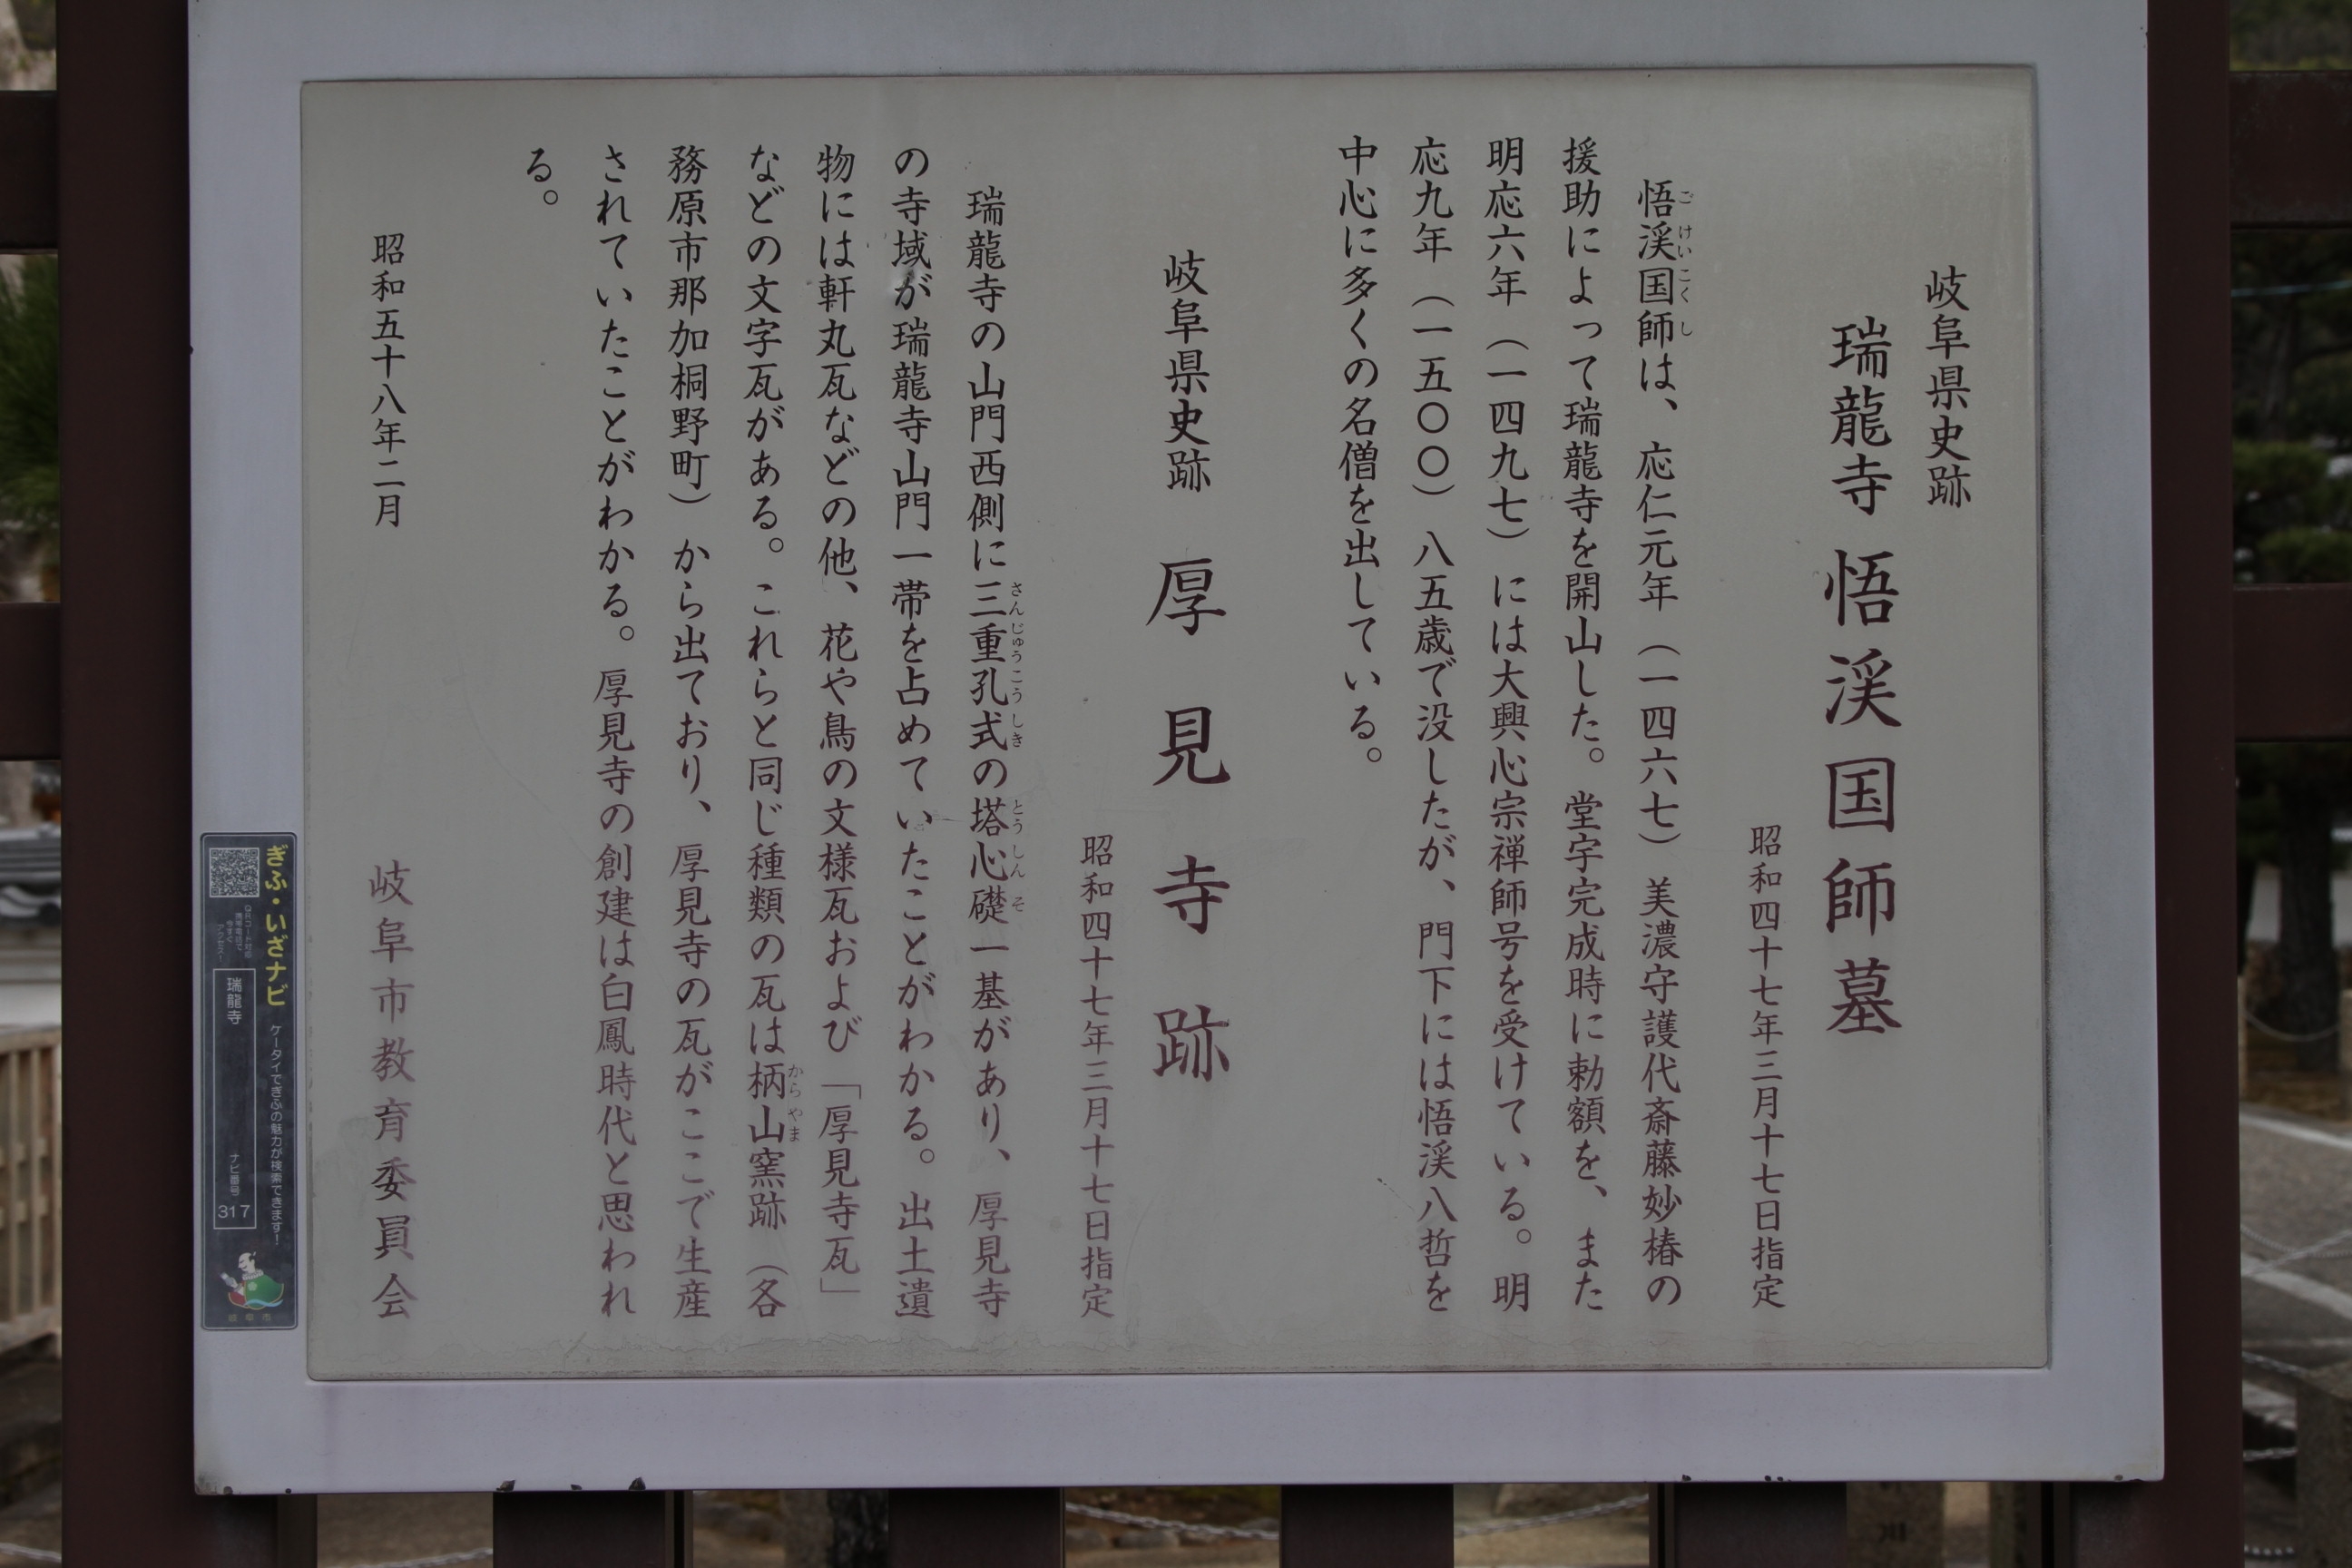 岐阜県史跡
瑞龍寺 悟渓国師墓
昭和四十七年三月十七日指定
悟渓国師は、応仁元年(一四六七)美濃守護代斎藤妙椿の
ごけいこくし
援助によって瑞龍寺を開山した。堂宇完成時に勅額を、また
明応六年(一四九七)には大興心宗禅師号を受けている。明
応九年(一五〇〇)八五歳で没したが、門下には悟渓八哲を
中心に多くの名僧を出している。
岐阜県史跡 厚見寺跡
昭和四十七年三月十七日指定
瑞龍寺の山門西側に三重孔式の塔心礎一基があり、厚見寺
さんじゅうこうしき とうしんそ
の寺域が瑞龍寺山門一帯を占めていたことがわかる。出土遺
物には軒丸瓦などの他、花や鳥の文様瓦および「厚見寺瓦」
などの文字瓦がある。これらと同じ種類の瓦は柄山窯跡(各
からやま
務原市那加桐野町)から出ており、厚見寺の瓦がここで生産
されていたことがわかる。厚見寺の創建は白鳳時代と思われ
る。
昭和五十八年二月
岐阜市教育委員会
ぎふ・いざナビ
ケータイでぎふの魅力が検索できます!
QRコード対応
携帯電話で
今すぐ
アクセス!
瑞龍寺
ナビ番号
317
岐阜市